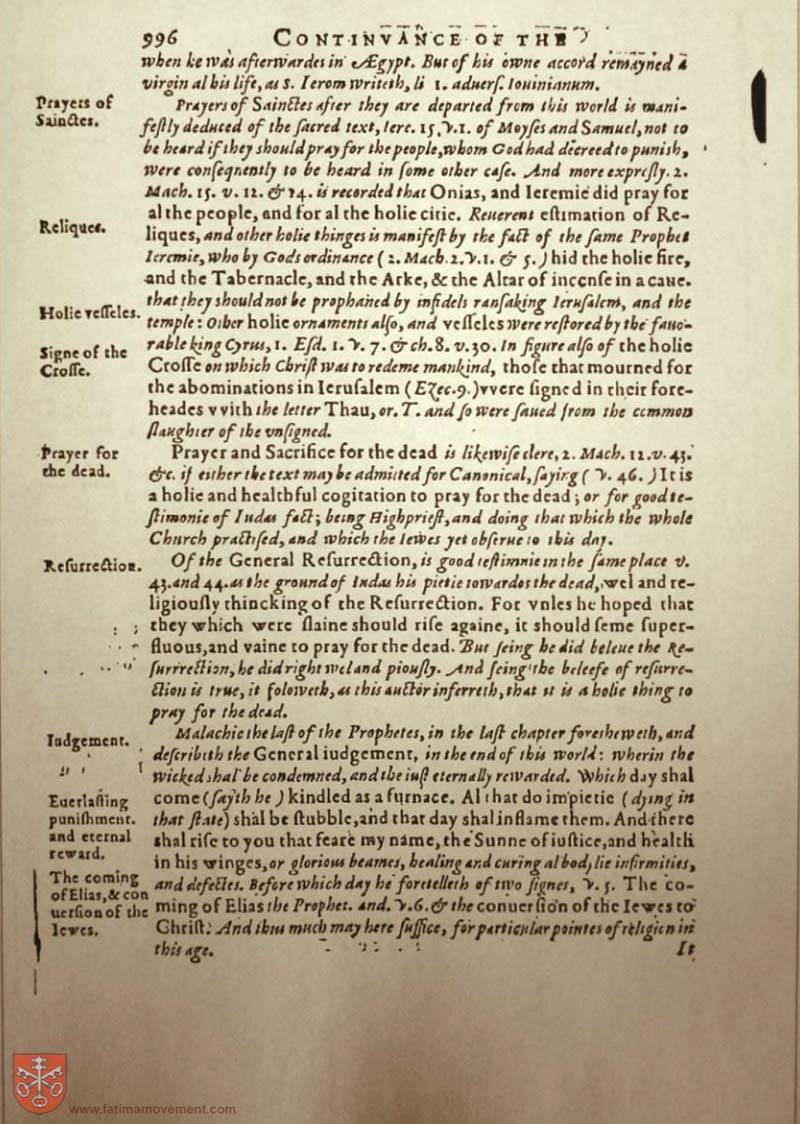 996 CONTINVANCE OF THE
when he was afterwardes in Ægypt. But of his owne accord remayned a
virgin al his life, as S. Ierom writeth, li 1. aduerſ. Iouinianum.
Prayers of
Sainctes.
Prayers of Sainctes after they are departed from this world is mani-
feſtly deduced of the ſacred text, Iere. 15, v. 1. of Moyſes and Samuel, not to
be heard if they should pray for the people, whom God had decreed to punish,
were conſequently to be heard in ſome other caſe. And more expreſly. 2.
Mach. 15. v. 12. & 14. is recorded that Onias, and Ieremie did pray for
al the people, and for al the holie citie. Reuerent eſtimation of Re-
Reliques.
liques, and other holie thinges is manifeſt by the fact of the ſame Prophet
Ieremie, who by Gods ordinance (2. Mach. 2. v. 1. & 5.) hid the holie fire,
and the Tabernacle, and the Arke, & the Altar of incenſe in a caue.
that they should not be prophaned by infidels ranſaking Ieruſalem, and the
Holie veſſeles.
temple: Other holie ornaments alſo, and veſſeles were reſtored by the fauo-
rable king Cyrus, 1. Eſd. 1. v. 7. & ch. 8. v. 30. In figure alſo of the holie
Signe of the
Croſſe.
Croſſe on which Chriſt was to redeme mankind, thoſe that mourned for
the abominations in Ieruſalem (Ezec. 9.) vvere ſigned in their fore-
heades vvith the letter Thau, or. T. and ſo were ſaued from the common
ſlaughter of the vnſigned.
Prayer for
the dead.
Prayer and Sacrifice for the dead is likewiſe clere, 2. Mach. 12. v. 43.
&c. if either the text may be admitted for Canonical, ſaying (v. 46.) It is
a holie and healthful cogitation to pray for the dead; or for good te-
ſtimonie of Iudas fact; being Highprieſt, and doing that which the whole
Church practiſed, and which the Iewes yet obſerue to this day.
Reſurrection.
Of the General Reſurrection, is good teſtimnie in the ſame place v.
43. and 44. as the ground of Iudas his pietie towardes the dead, wel and re-
ligiouſly thincking of the Reſurrection. For vnles he hoped that
they which were ſlaine should riſe againe, it should ſeme ſuper-
fluous, and vaine to pray for the dead. But ſeing he did beleue the Re-
ſurrection, he did right wel and piouſly. And ſeing the beleefe of reſurre-
ction is true, it foloweth, as this auctor inferreth, that it is a holie thing to
pray for the dead.
Iudgement.
Malachie the laſt of the Prophetes, in the laſt chapter foresheweth, and
deſcribeth the General iudgement, in the end of this world: wherin the
wicked shal be condemned, and the iuſt eternally rewarded. Which day shal
Euerlaſting
punishment.
and eternal
reward.
come (ſayth he) kindled as a furnace. Al that do impietie (dying in
that ſtate) shal be ſtubble, and that day shal inflame them. And there
shal riſe to you that feare my name, the Sunne of iuſtice, and health
in his winges, or glorious beames, healing and curing al bodylie infirmities,
The coming
of Elias, & con
uerſion of the
Iewes.
and defectes. Before which day he foretelleth of two ſignes, v. 5. The co-
ming of Elias the Prophet. and. v. 6. & the conuerſion of the Iewes to
Chriſt: And thus much may here ſuffice, for particular pointes of religion in
this age.
It
www.fatimamovement.com